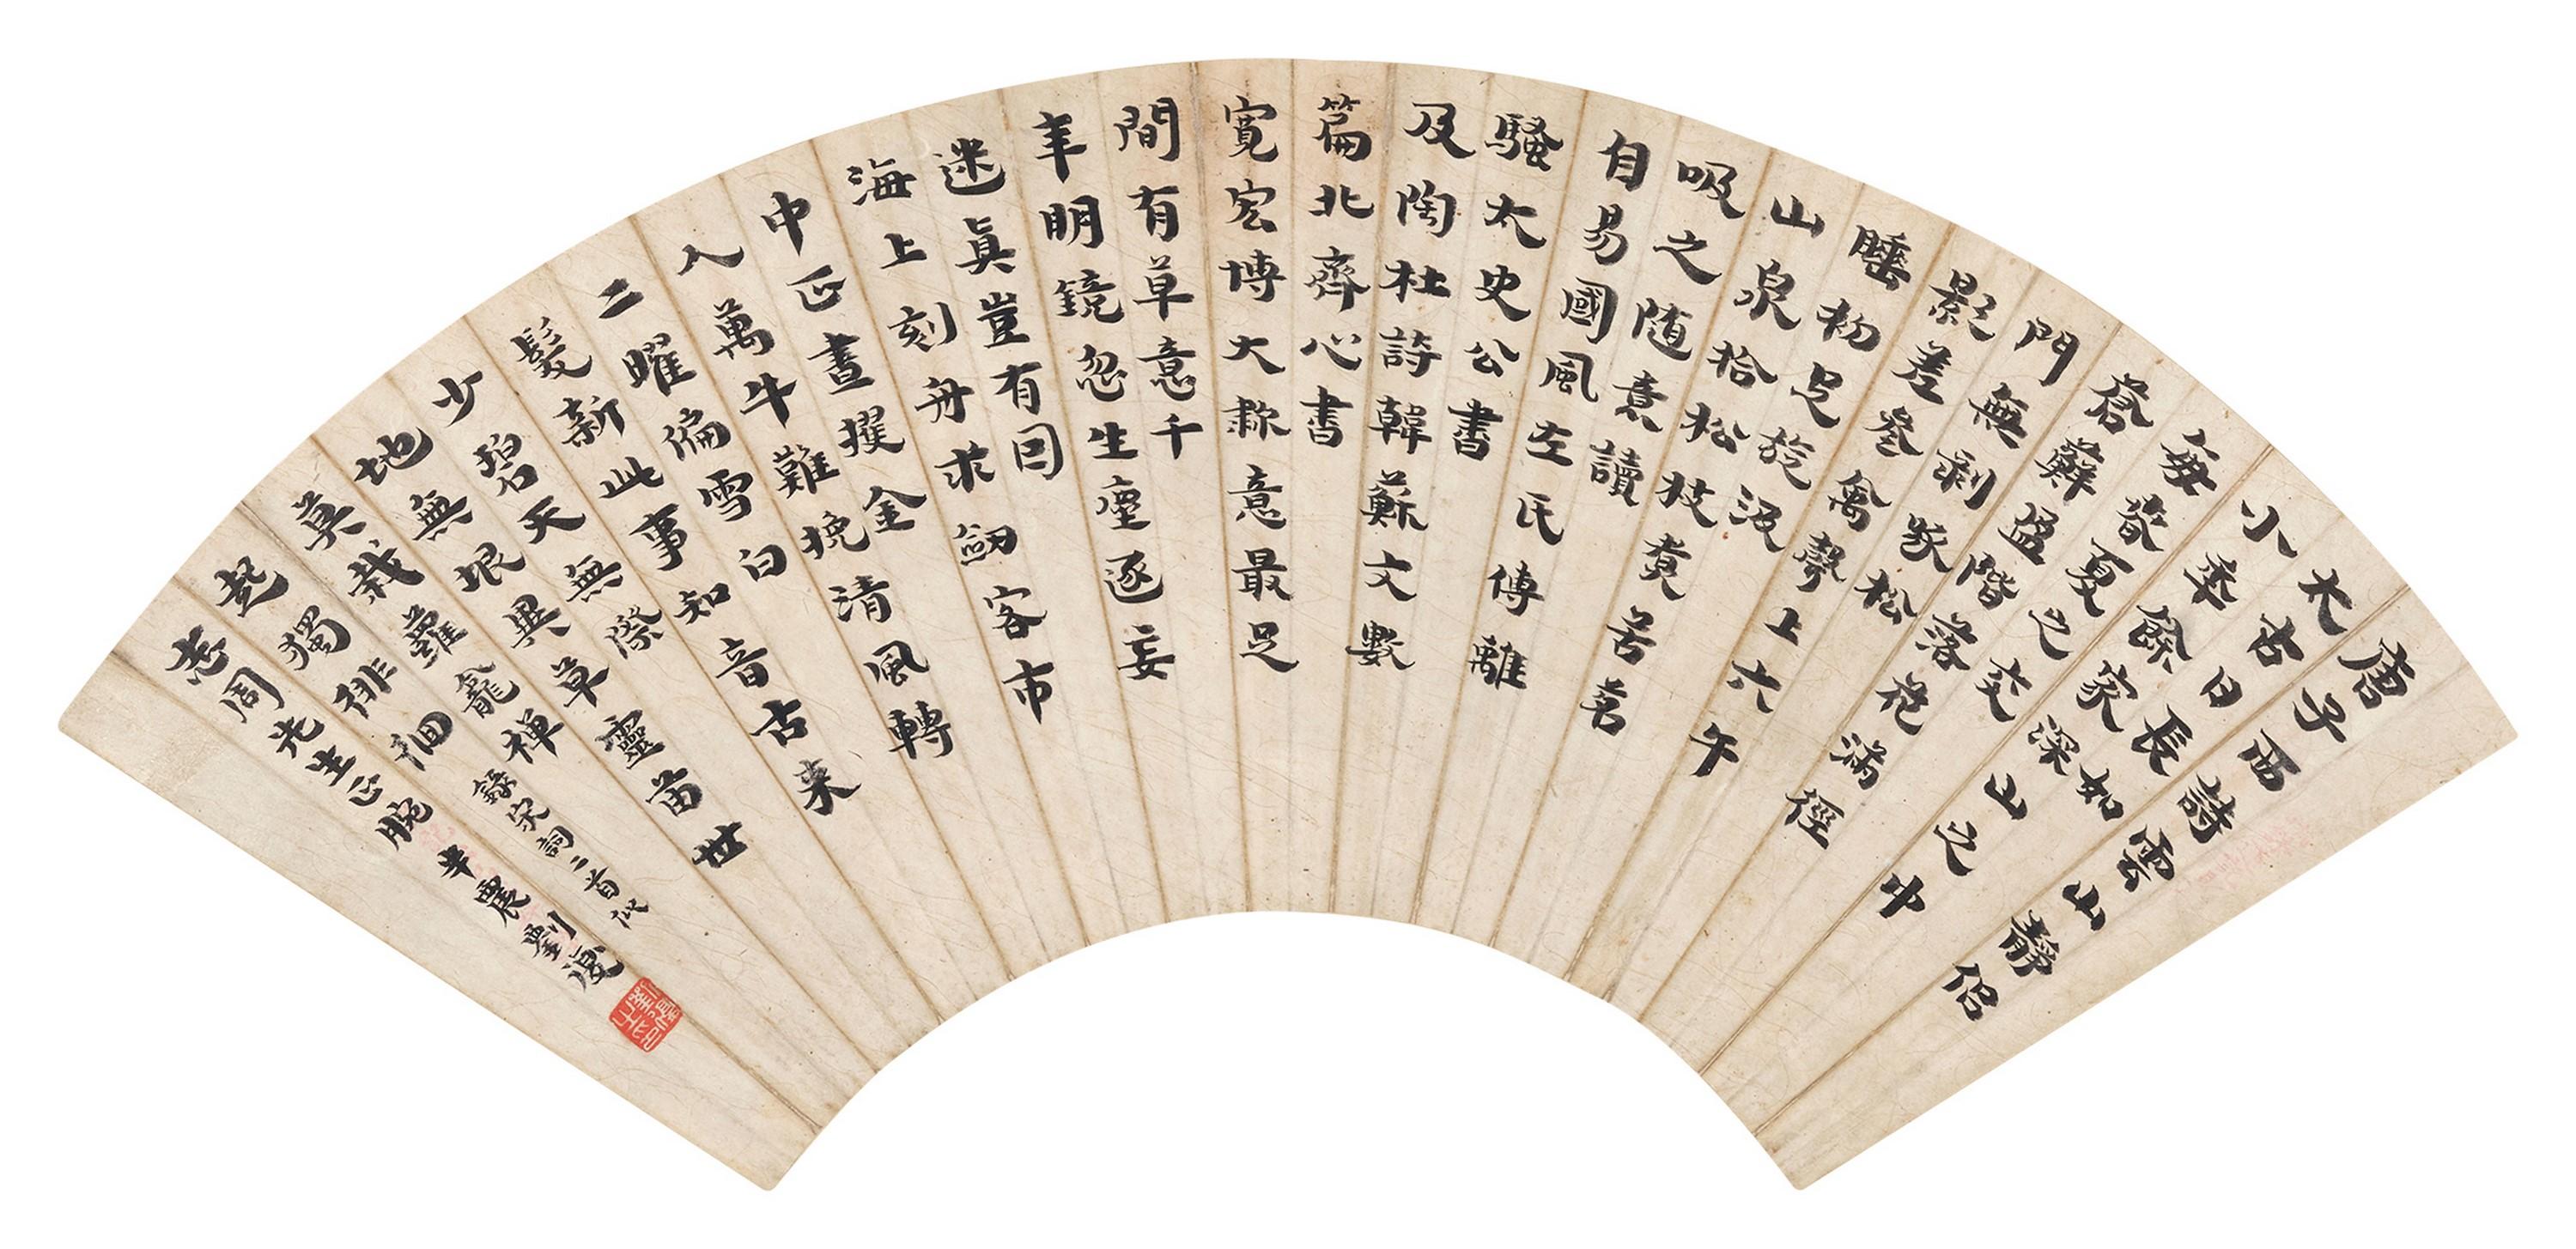 唐子西詩雲山靜侶
太古日長如
小秊餘家深山之中
每旾夏之交
蒼蘚盈階落花滿徑
門無剥啄松
影差參禽聲上六午
睡初足旋汲
山泉拾松枝煑苦茗
吸之随意讀
自易國風左氏傳離
騷太史公書
及陶杜詩韓蘇文數
篇北齊心書
寬宏博大隸意最足
間有草意千
年明鏡忽生塵逐妄
迷真豈有因
海上刻舟求劔客市
中正晝攫金
人萬牛難挽清風轉
二曜偏雪白
髮新此事知音古来
少碧天無際
地無垠異草靈苗世
莫栽蘿龕禪
起獨排徊 錄宋詞二首於
志周先生正腕 半農劉復